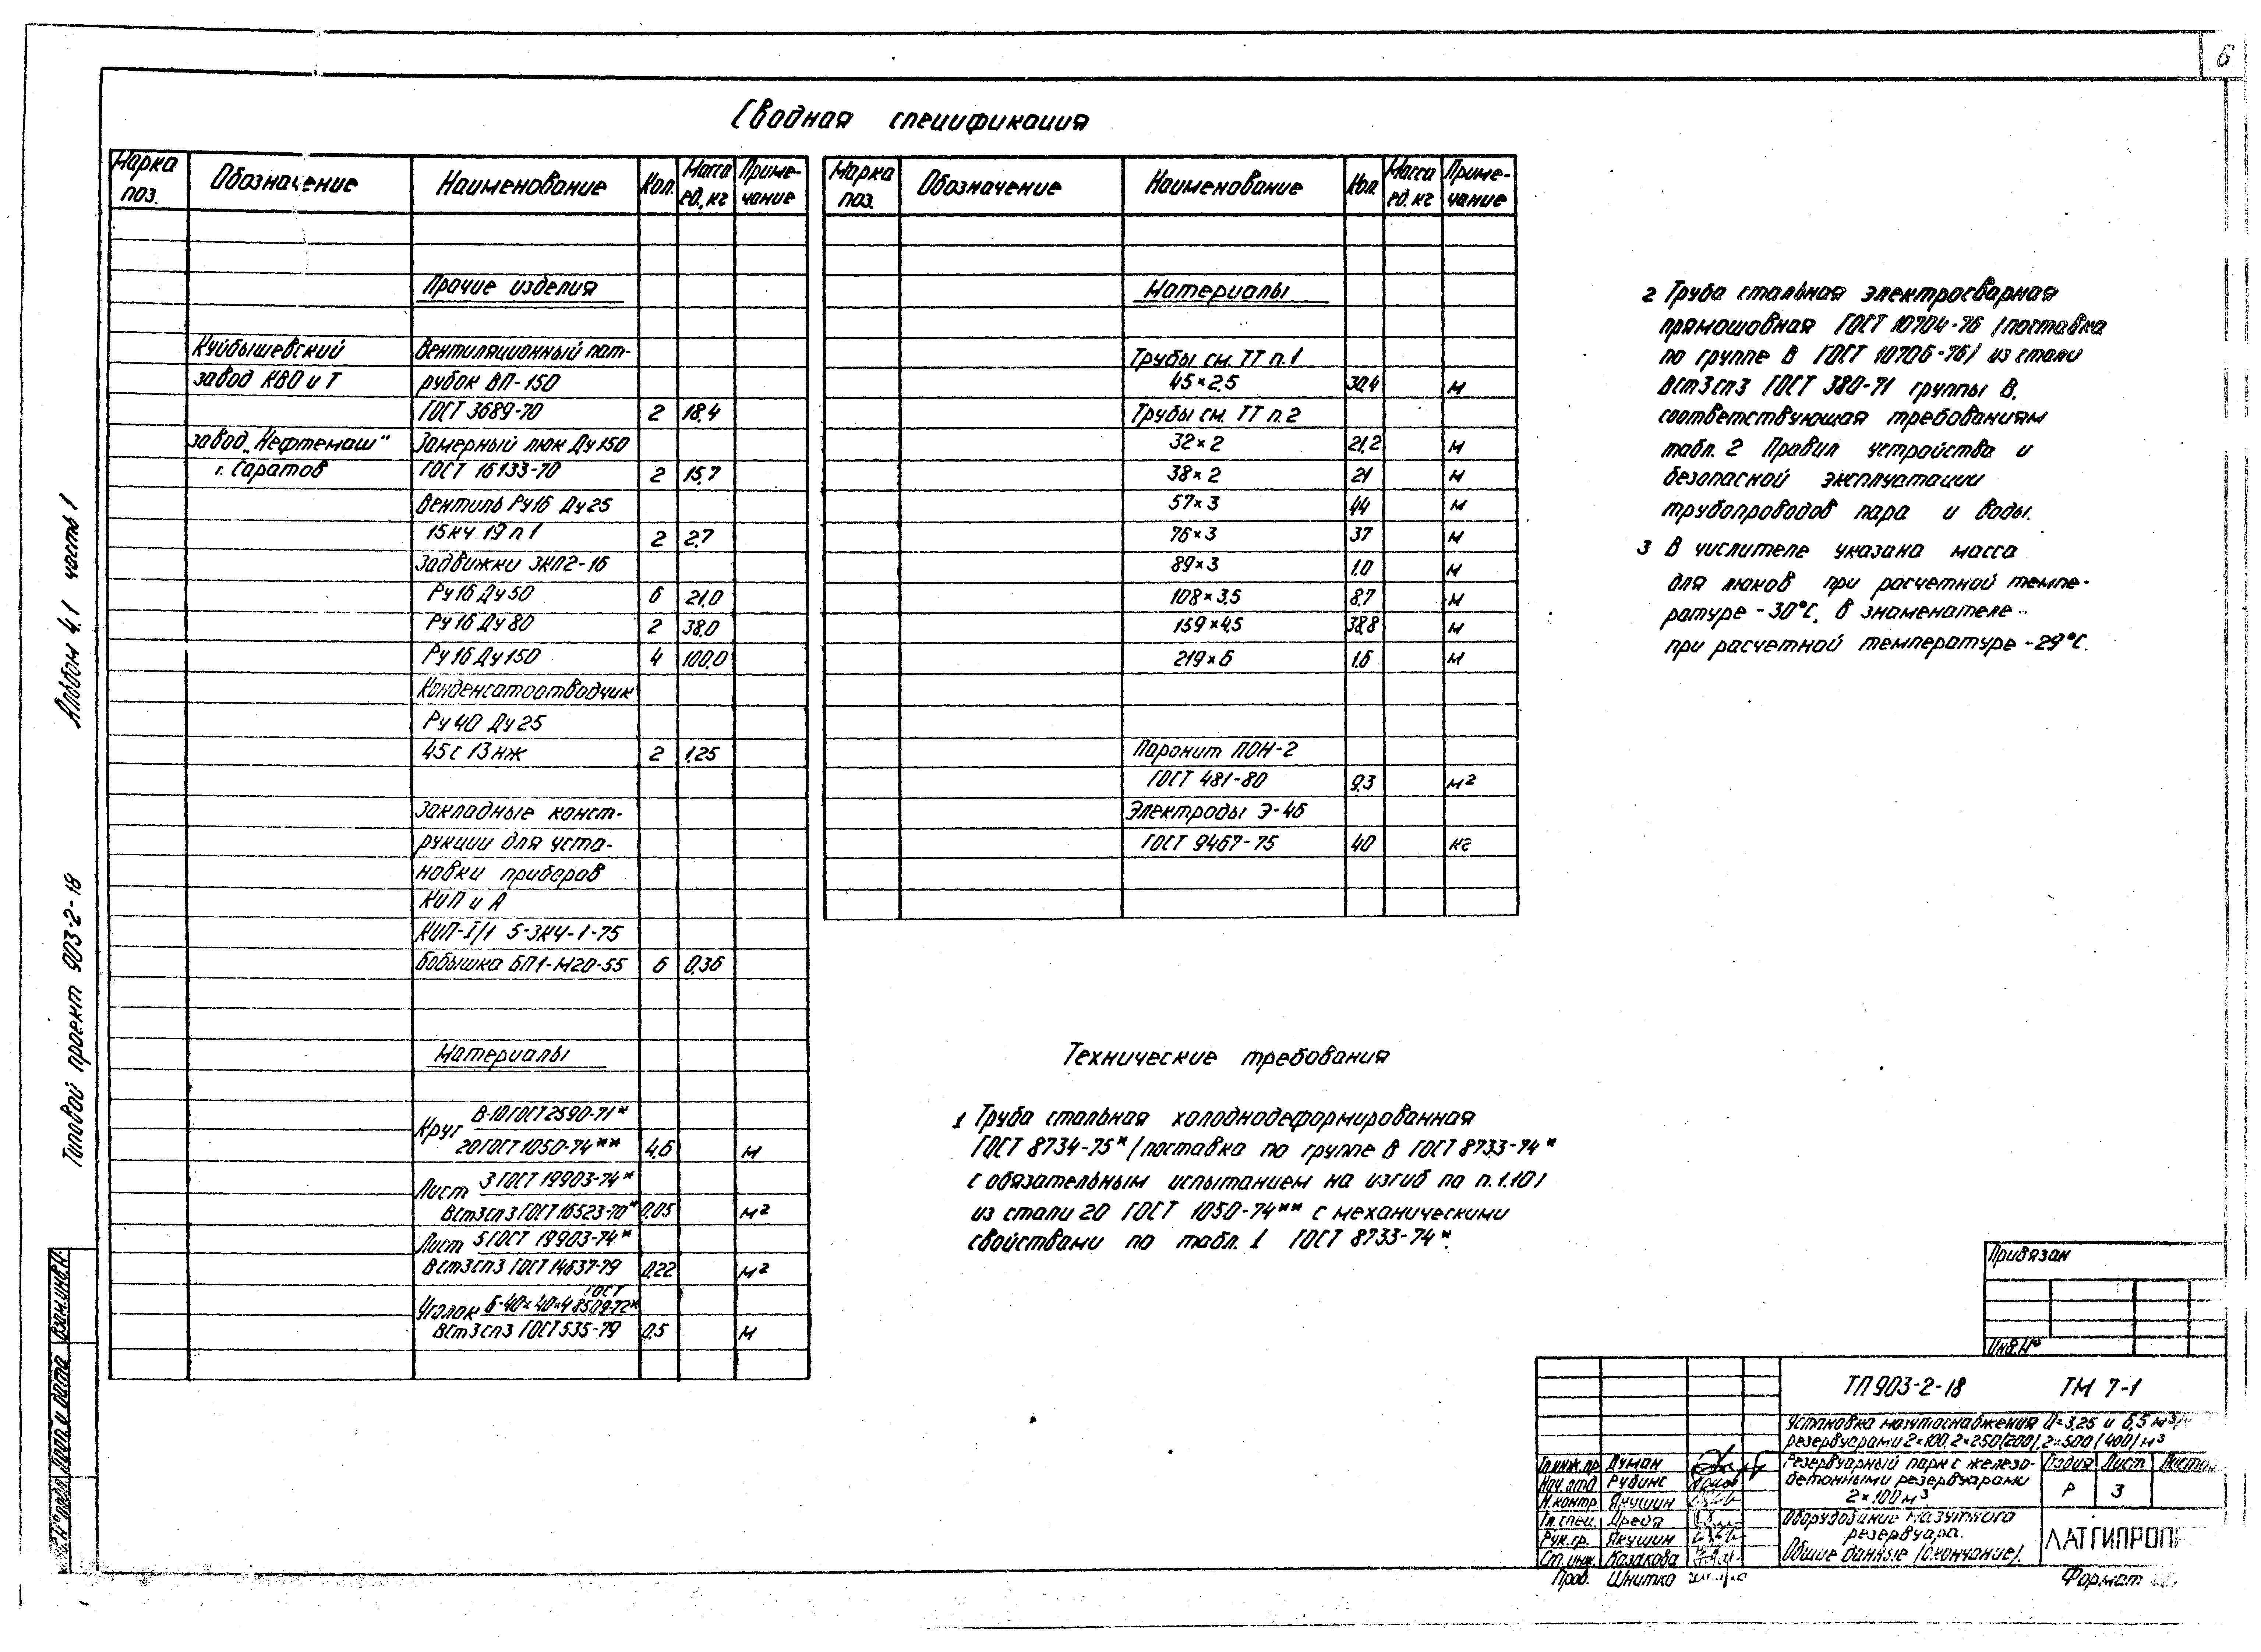 6
Сводная спецификация
Марка поз. Обозначение Наименование Кол. Масса ед., кг Приме-чание
Прочие изделия
Куйбышевский Вентиляционный пат-
завод КВО и Т рубок ВП-150
ГОСТ 3689-70 2 18,4
завод „Нефтемаш" Замерный люк Ду150
г. Саратов ГОСТ 16133-70 2 15,7
Вентиль Ру16 Ду25
15кч 19 п 1 2 2,7
Задвижки ЗКЛ2-16
Ру16 Ду50 6 21,0
Ру16 Ду80 2 38,0
Ру16 Ду150 4 100,0
Конденсатоотводчик
Ру40 Ду25
45с 13нж 2 1,25
Закладные конст-
рукции для уста-
новки приборов
КИП и А
КИП-I/1 5-ЗКЧ-1-75
Бобышка БП1-М20-55 6 0,36
Материалы
Круг В-10 ГОСТ 2590-71*
20 ГОСТ 1050-74** 4,6 м
Лист 3 ГОСТ 19903-74*
ВСт3сп3 ГОСТ 16523-70* 0,05 м²
Лист 5 ГОСТ 19903-74*
ВСт3сп3 ГОСТ 14637-79 0,22 м²
Уголок Б-40×40×4 ГОСТ 8509-72*
ВСт3сп3 ГОСТ 535-79 0,5 м
Марка поз. Обозначение Наименование Кол. Масса ед. кг Приме-чание
Материалы
Трубы см. ТТ п.1
45×2,5 30,4 м
Трубы см. ТТ п.2
32×2 21,2 м
38×2 21 м
57×3 44 м
76×3 37 м
89×3 1,0 м
108×3,5 8,7 м
159×4,5 38,8 м
219×6 1,6 м
Паронит ПОН-2
ГОСТ 481-80 9,3 м²
Электроды Э-46
ГОСТ 9467-75 40 кг
Технические требования
1 Труба стальная холоднодеформированная
ГОСТ 8734-75* (поставка по группе В ГОСТ 8733-74*
с обязательным испытанием на изгиб по п.1.10)
из стали 20 ГОСТ 1050-74** с механическими
свойствами по табл. 1 ГОСТ 8733-74*.
2 Труба стальная электросварная
прямошовная ГОСТ 10704-76 (поставка
по группе В ГОСТ 10706-76) из стали
ВСт3сп3 ГОСТ 380-71 группы В,
соответствующая требованиям
табл. 2 Правил устройства и
безопасной эксплуатации
трубопроводов пара и воды.
3 В числителе указана масса
для люков при расчетной темпе-
ратуре -30°С, в знаменателе -
при расчетной температуре -29°С.
Альбом 4.1 часть 1
Типовой проект 903-2-18
Взам.инв.N
Подп. и дата
Инв.N°подл
Привязан
Инв.N°
ТП 903-2-18 ТМ 7-1
Установка мазутоснабжения Q=3,25 и 6,5 м³/ч
резервуарами 2×100, 2×250(200), 2×500(400) м³
Гл.инж.пр Думан
Нач.отд Рубинс
Н.контр. Якушин
Гл.спец. Дрейя
Рук.гр. Якушин
Ст.инж. Казакова
Пров. Шнитко
Резервуарный парк с железо-
бетонными резервуарами
2×100 м³
Стадия Лист Листов
Р 3
Оборудование мазутного
резервуара.
Общие данные (окончание).
ЛАТГИПРОП
Формат